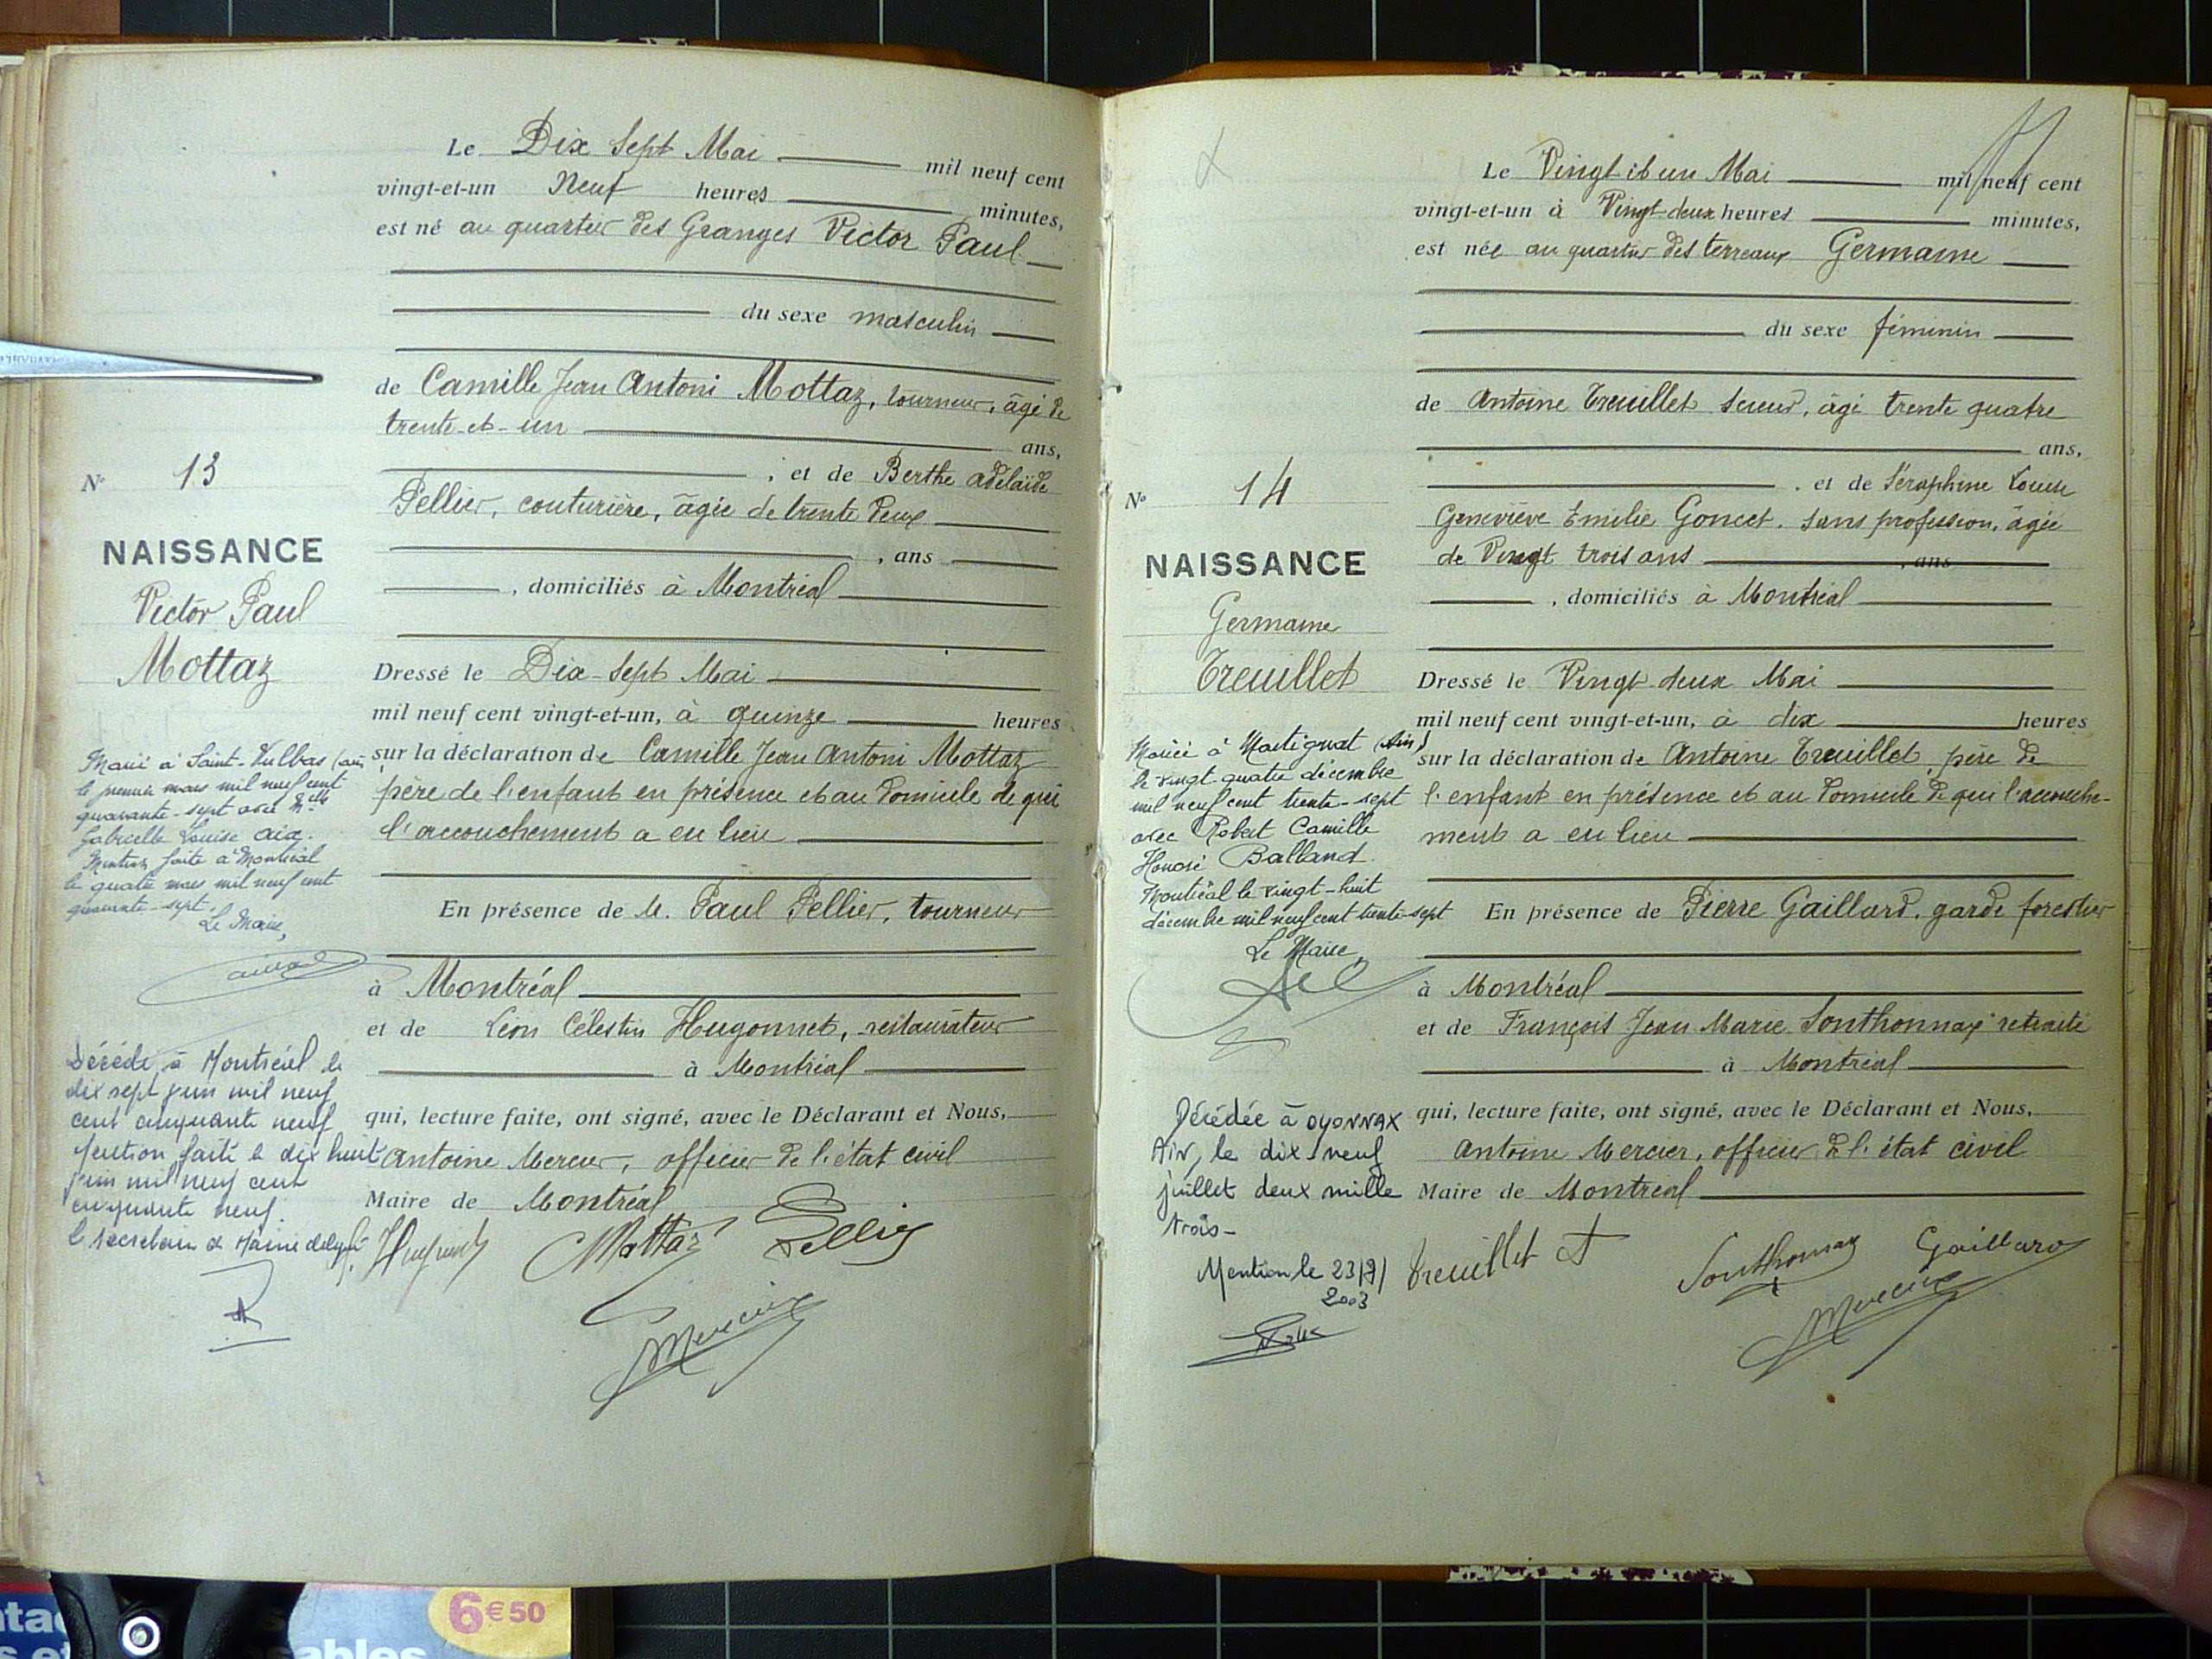 Le Dix Sept Mai mil neuf cent
vingt-et-un Neuf heures minutes,
est né au quartier des Granges Victor Paul
du sexe masculin
de Camille Jean Antoni Mottaz, tourneur, âgé de
trente-et-un ans,
, et de Berthe adélaïde
Pellier, couturière, âgée de trente deux
, ans
, domiciliés à Montréal
Dressé le Dix-Sept Mai
mil neuf cent vingt-et-un, à quinze heures
sur la déclaration de Camille Jean Antoni Mottaz
père de l'enfant en présence et au domicile de qui
l'accouchement a eu lieu
En présence de M. Paul Pellier, tourneur
à Montréal
et de Léon Célestin Hugonnet, restaurateur
à Montréal
qui, lecture faite, ont signé, avec le Déclarant et Nous,
Antoine Mercier, officier de l'état civil
Maire de Montréal
Mottaz Pellier
Mercier
N° 13
NAISSANCE
Victor Paul
Mottaz
Marié à Saint-Vulbas (ain)
le premier mars mil neuf cent
quarante-sept avec Mlle
Gabrielle Louise Aix.
Mention faite à Montréal
le quatre mars mil neuf cent
quarante-sept.
Le Maire,
Décédé à Montréal le
dix sept juin mil neuf
cent cinquante neuf
Mention faite le dix huit
juin mil neuf cent
cinquante neuf.
le secrétaire de Mairie délégué
Le Vingt et un Mai mil neuf cent
vingt-et-un à Vingt-deux heures minutes,
est née au quartier des terreaux Germaine
du sexe féminin
de Antoine Treuillet scieur, âgé trente quatre
ans,
, et de Séraphine Louise
Geneviève Emilie Goncet. sans profession, âgée
de Vingt trois ans , ans
, domiciliés à Montréal
Dressé le Vingt-deux Mai
mil neuf cent vingt-et-un, à dix heures
sur la déclaration de Antoine Treuillet, père de
l'enfant en présence et au domicile de qui l'accouche-
ment a eu lieu
En présence de Pierre Gaillard, garde forestier
à Montréal
et de François Jean Marie Sonthonnax retraité
à Montréal
qui, lecture faite, ont signé, avec le Déclarant et Nous,
Antoine Mercier, officier de l'état civil
Maire de Montréal
Treuillet A Sonthonnax Gaillard
Mercier
N° 14
NAISSANCE
Germaine
Treuillet
Mariée à Martignat (Ain)
le vingt-quatre décembre
mil neuf cent trente-sept
avec Robert Camille
Honoré Balland.
Montréal le vingt-huit
décembre mil neuf cent trente-sept
Le Maire,
Décédée à OYONNAX
Ain, le dix-neuf
juillet deux mille
trois-
Mention le 23/7/
2003
6€50